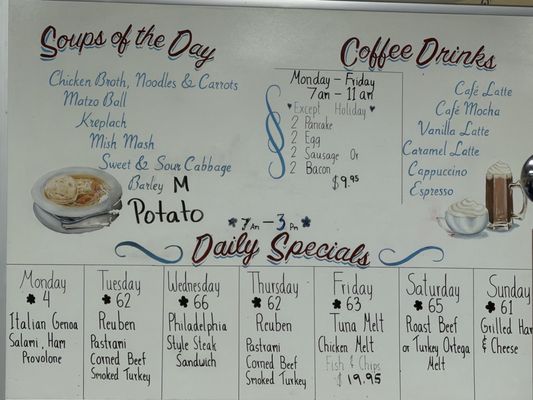 Soups of the Day
Chicken Broth, Noodles & Carrots
Matzo Ball
Kreplach
Mish Mash
Sweet & Sour Cabbage
Barley M
Potato
Monday - Friday
7am - 11am
Except Holiday
2 Pancake
2 Egg
2 Sausage Or
2 Bacon
$9.95
Coffee Drinks
Café Latte
Café Mocha
Vanilla Latte
Caramel Latte
Cappuccino
Espresso
7 Am - 3 Pm
Daily Specials
Monday
4
Italian Genoa
Salami, Ham
Provolone
Tuesday
62
Reuben
Pastrami
Corned Beef
Smoked Turkey
Wednesday
66
Philadelphia
Style Steak
Sandwich
Thursday
62
Reuben
Pastrami
Corned Beef
Smoked Turkey
Friday
63
Tuna Melt
Chicken Melt
Fish & Chips
$19.95
Saturday
65
Roast Beef
or Turkey Ortega
Melt
Sunday
61
Grilled Ham
& Cheese